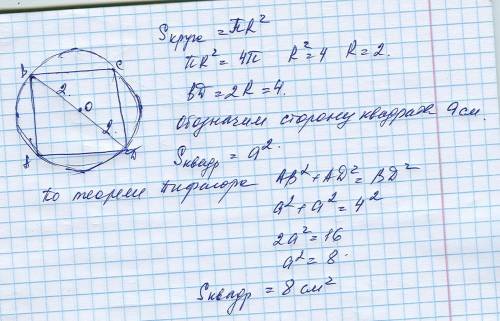 Sкруга = πR²
πR² = 4π R² = 4 R = 2.
BD = 2R = 4.
Обозначим сторону квадрата a см.
Sквадр = a².
По теореме Пифагора AB² + AD² = BD²
a² + a² = 4²
2a² = 16
a² = 8.
Sквадр = 8 см²
B
C
2.
O
2.
A
D